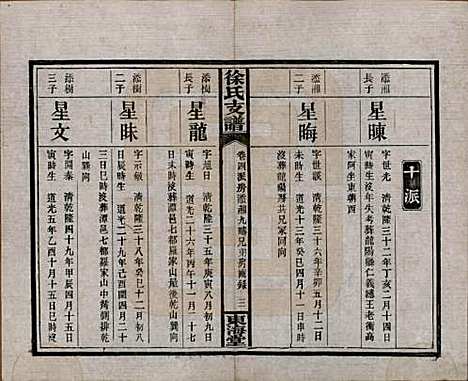 十派
添湘
長子
星暕
字世光 清乾隆三十二年丁亥二月十四
寅時生没年失考葬龍陽縣仁義總王老衝高
家阿坐東朝西
添湘
二子
星晦
字世眼 清乾隆三十六年辛卯五月十二
未時生 道光十三年癸巳四月初一日申時
没葬龍陽 共兄家同向
徐氏支譜
卷四派房添湘九 兄弟房齒錄
三
東海堂
添樹
長子
星龍
字通日 清乾隆三十五年庚寅八月初九日
寅時生 道光二十六年丙午十一月二十七
日未時没葬潭邑七都羅家山屋後乾山巽向
添樹
二子
星昧
字示敏 清乾隆三十八年癸巳十二月初八
辰時生 道光二十九年己酉閏四月二十
三日巳時没葬潭邑七都羅家山中嘴側排乾
山巽向
添樹
三子
星文
字同煥 清乾隆四十九年甲辰四月十五日
寅時生 道光五年乙酉十月十五日巳時没